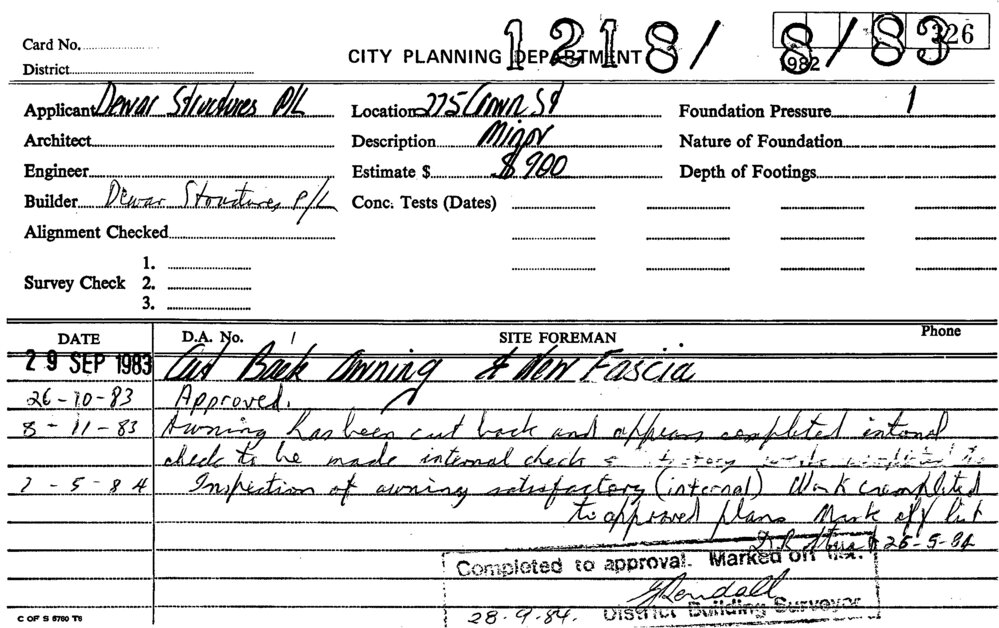 Card No.
CITY PLANNING DEPARTMENT
1218/8/83
326
1982
District
Applicant Dewar Structures P/L
Location 275 Crown St
Foundation Pressure
Architect
Description Minor
Nature of Foundation
Engineer
Estimate $ $900
Depth of Footings
Builder Dewar Structures P/L
Conc. Tests (Dates)
Alignment Checked
Survey Check
1.
2.
3.
DATE D.A. No. SITE FOREMAN Phone
29 SEP 1983 Cut Back Awning & New Fascia
26-10-83 Approved.
8-11-83 Awning has been cut back and appears completed internal
check to be made internal check
2-5-84 Inspection of awning satisfactory (internal) Work completed
to approved plans Mark off list
26-5-84
Completed to approval. Marked off list.
28-9-84. District Building Surveyor
C OF S 5760 T6